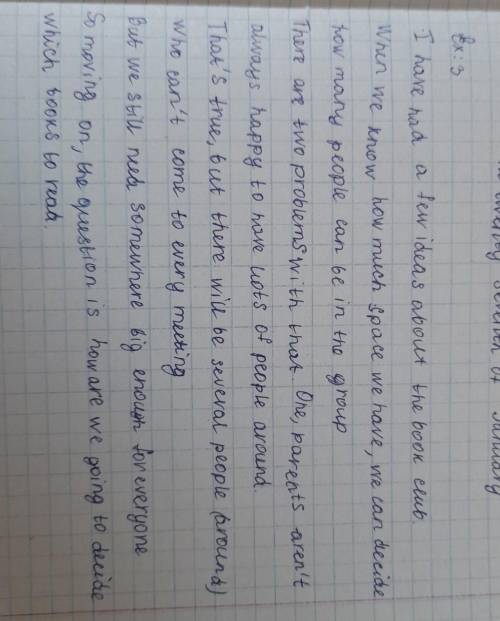 January
Ex: 3
I have had a few ideas about the book club.
When we know how much space we have, we can decide
how many people can be in the group
There are two problems with that. One, parents aren't
always happy to have lots of people around.
That's true, but there will be several people (around)
who can't come to every meeting
But we still need somewhere big enough for everyone
So moving on, the question is how are we going to decide
which books to read.